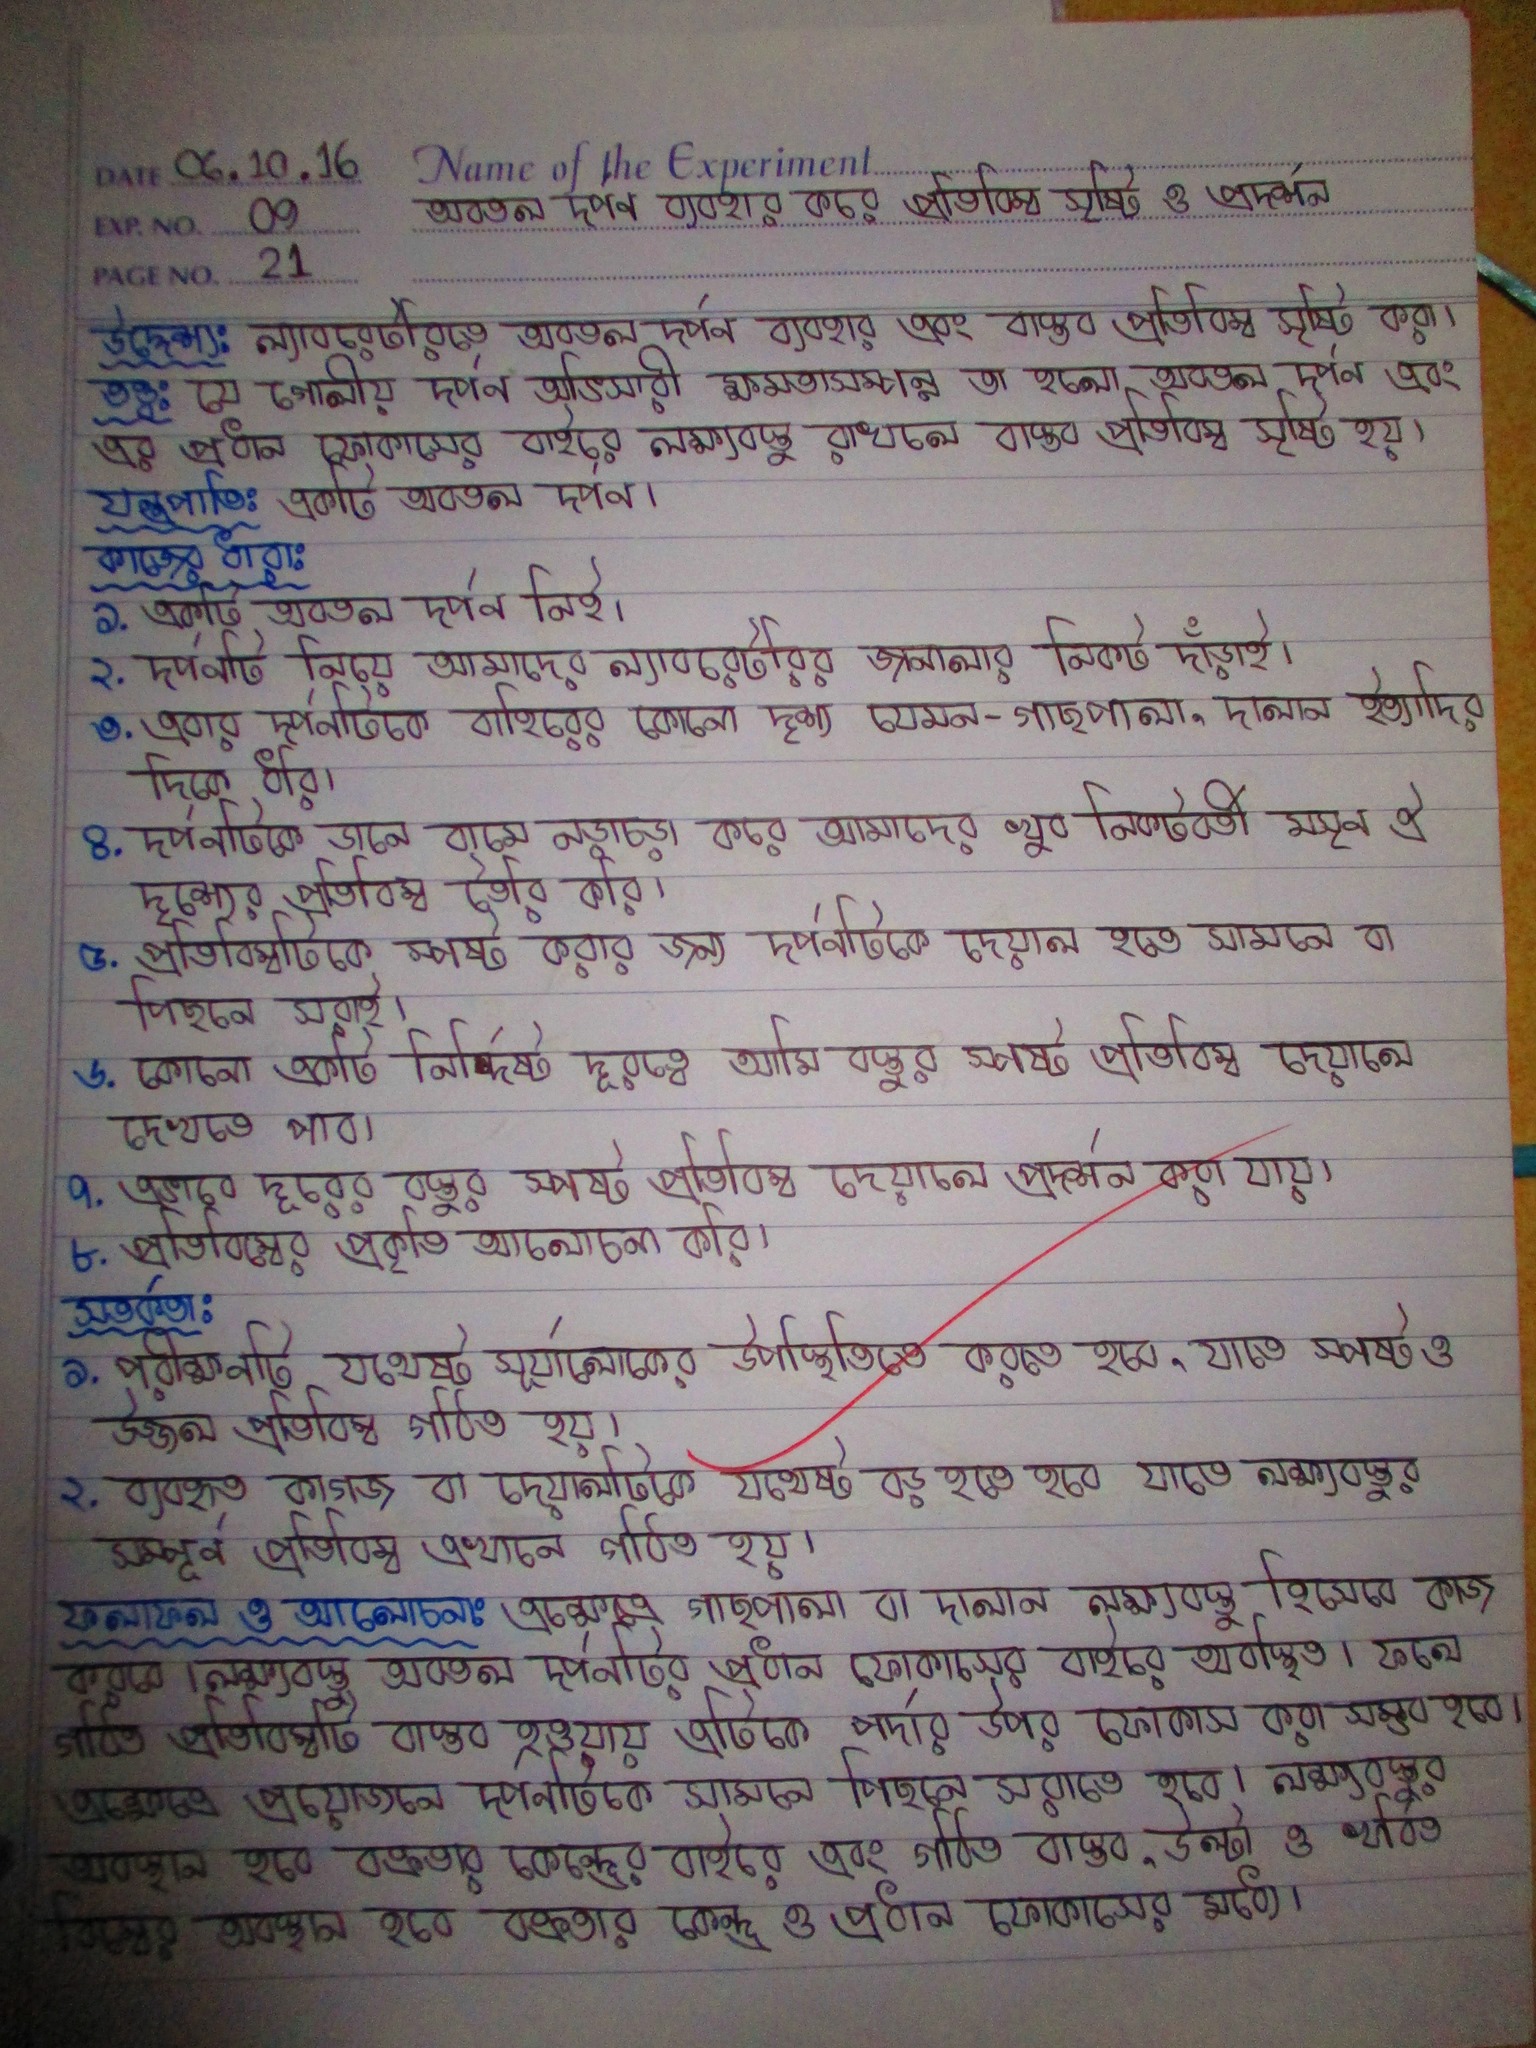 DATE 06.10.16 Name of the Experiment
EXP. NO. 09 অবতল দর্পন ব্যবহার করে প্রতিবিম্ব সৃষ্টি ও প্রদর্শন
PAGE NO. 21
উদ্দেশ্যঃ ল্যাবরেটরিতে অবতল দর্পন ব্যবহার এবং বাস্তব প্রতিবিম্ব সৃষ্টি করা।
তত্ত্বঃ যে গোলীয় দর্পন অভিসারী ক্ষমতাসম্পন্ন তা হলো অবতল দর্পন এবং
এর প্রধান ফোকাসের বাইরে লক্ষ্যবস্তু রাখলে বাস্তব প্রতিবিম্ব সৃষ্টি হয়।
যন্ত্রপাতিঃ একটি অবতল দর্পন।
কাজের ধারাঃ
১. একটি অবতল দর্পন নিই।
২. দর্পনটি নিয়ে আমাদের ল্যাবরেটরির জানালার নিকট দাঁড়াই।
৩. এবার দর্পনটিকে বাহিরের কোনো দৃশ্য যেমন-গাছপালা, দালান ইত্যাদির
দিকে ধরি।
৪. দর্পনটিকে ডানে বামে নড়াচড়া করে আমাদের খুব নিকটবর্তী মসৃন ঐ
দৃশ্যের প্রতিবিম্ব তৈরি করি।
৫. প্রতিবিম্বটিকে স্পষ্ট করার জন্য দর্পনটিকে দেয়াল হতে সামনে বা
পিছনে সরাই।
৬. কোনো একটি নির্দিষ্ট দূরত্বে আমি বস্তুর স্পষ্ট প্রতিবিম্ব দেয়ালে
দেখতে পাব।
৭. এভাবে দূরের বস্তুর স্পষ্ট প্রতিবিম্ব দেয়ালে প্রদর্শন করা যায়।
৮. প্রতিবিম্বের প্রকৃতি আলোচনা করি।
সতর্কতাঃ
১. পরীক্ষনটি যথেষ্ট সূর্যালোকের উপস্থিতিতে করতে হবে, যাতে স্পষ্ট ও
উজ্জল প্রতিবিম্ব গঠিত হয়।
২. ব্যবহৃত কাগজ বা দেয়ালটিকে যথেষ্ট বড় হতে হবে যাতে লক্ষ্যবস্তুর
সম্পূর্ন প্রতিবিম্ব এখানে গঠিত হয়।
ফলাফল ও আলোচনাঃ এক্ষেত্রে গাছপালা বা দালান লক্ষ্যবস্তু হিসেবে কাজ
করবে। লক্ষ্যবস্তু অবতল দর্পনটির প্রধান ফোকাসের বাইরে অবস্থিত। ফলে
গঠিত প্রতিবিম্বটি বাস্তব হওয়ায় এটিকে পর্দার উপর ফোকাস করা সম্ভব হবে।
এক্ষেত্রে প্রয়োজনে দর্পনটিকে সামনে পিছনে সরাতে হবে। লক্ষ্যবস্তুর
অবস্থান হবে বক্রতার কেন্দ্রের বাইরে এবং গঠিত বাস্তব, উল্টা ও খর্বিত
বিম্বের অবস্থান হবে বক্রতার কেন্দ্র ও প্রধান ফোকাসের মধ্যে।